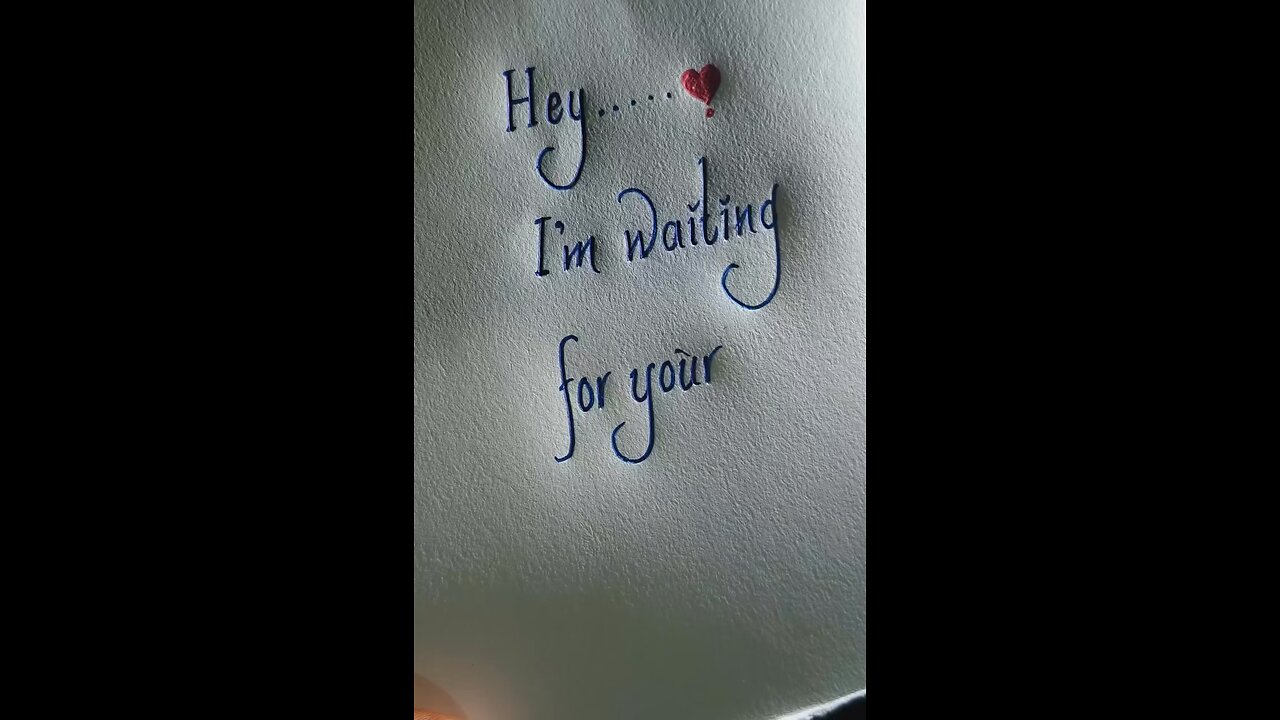 Hey.....❤
I'm waiting
for your